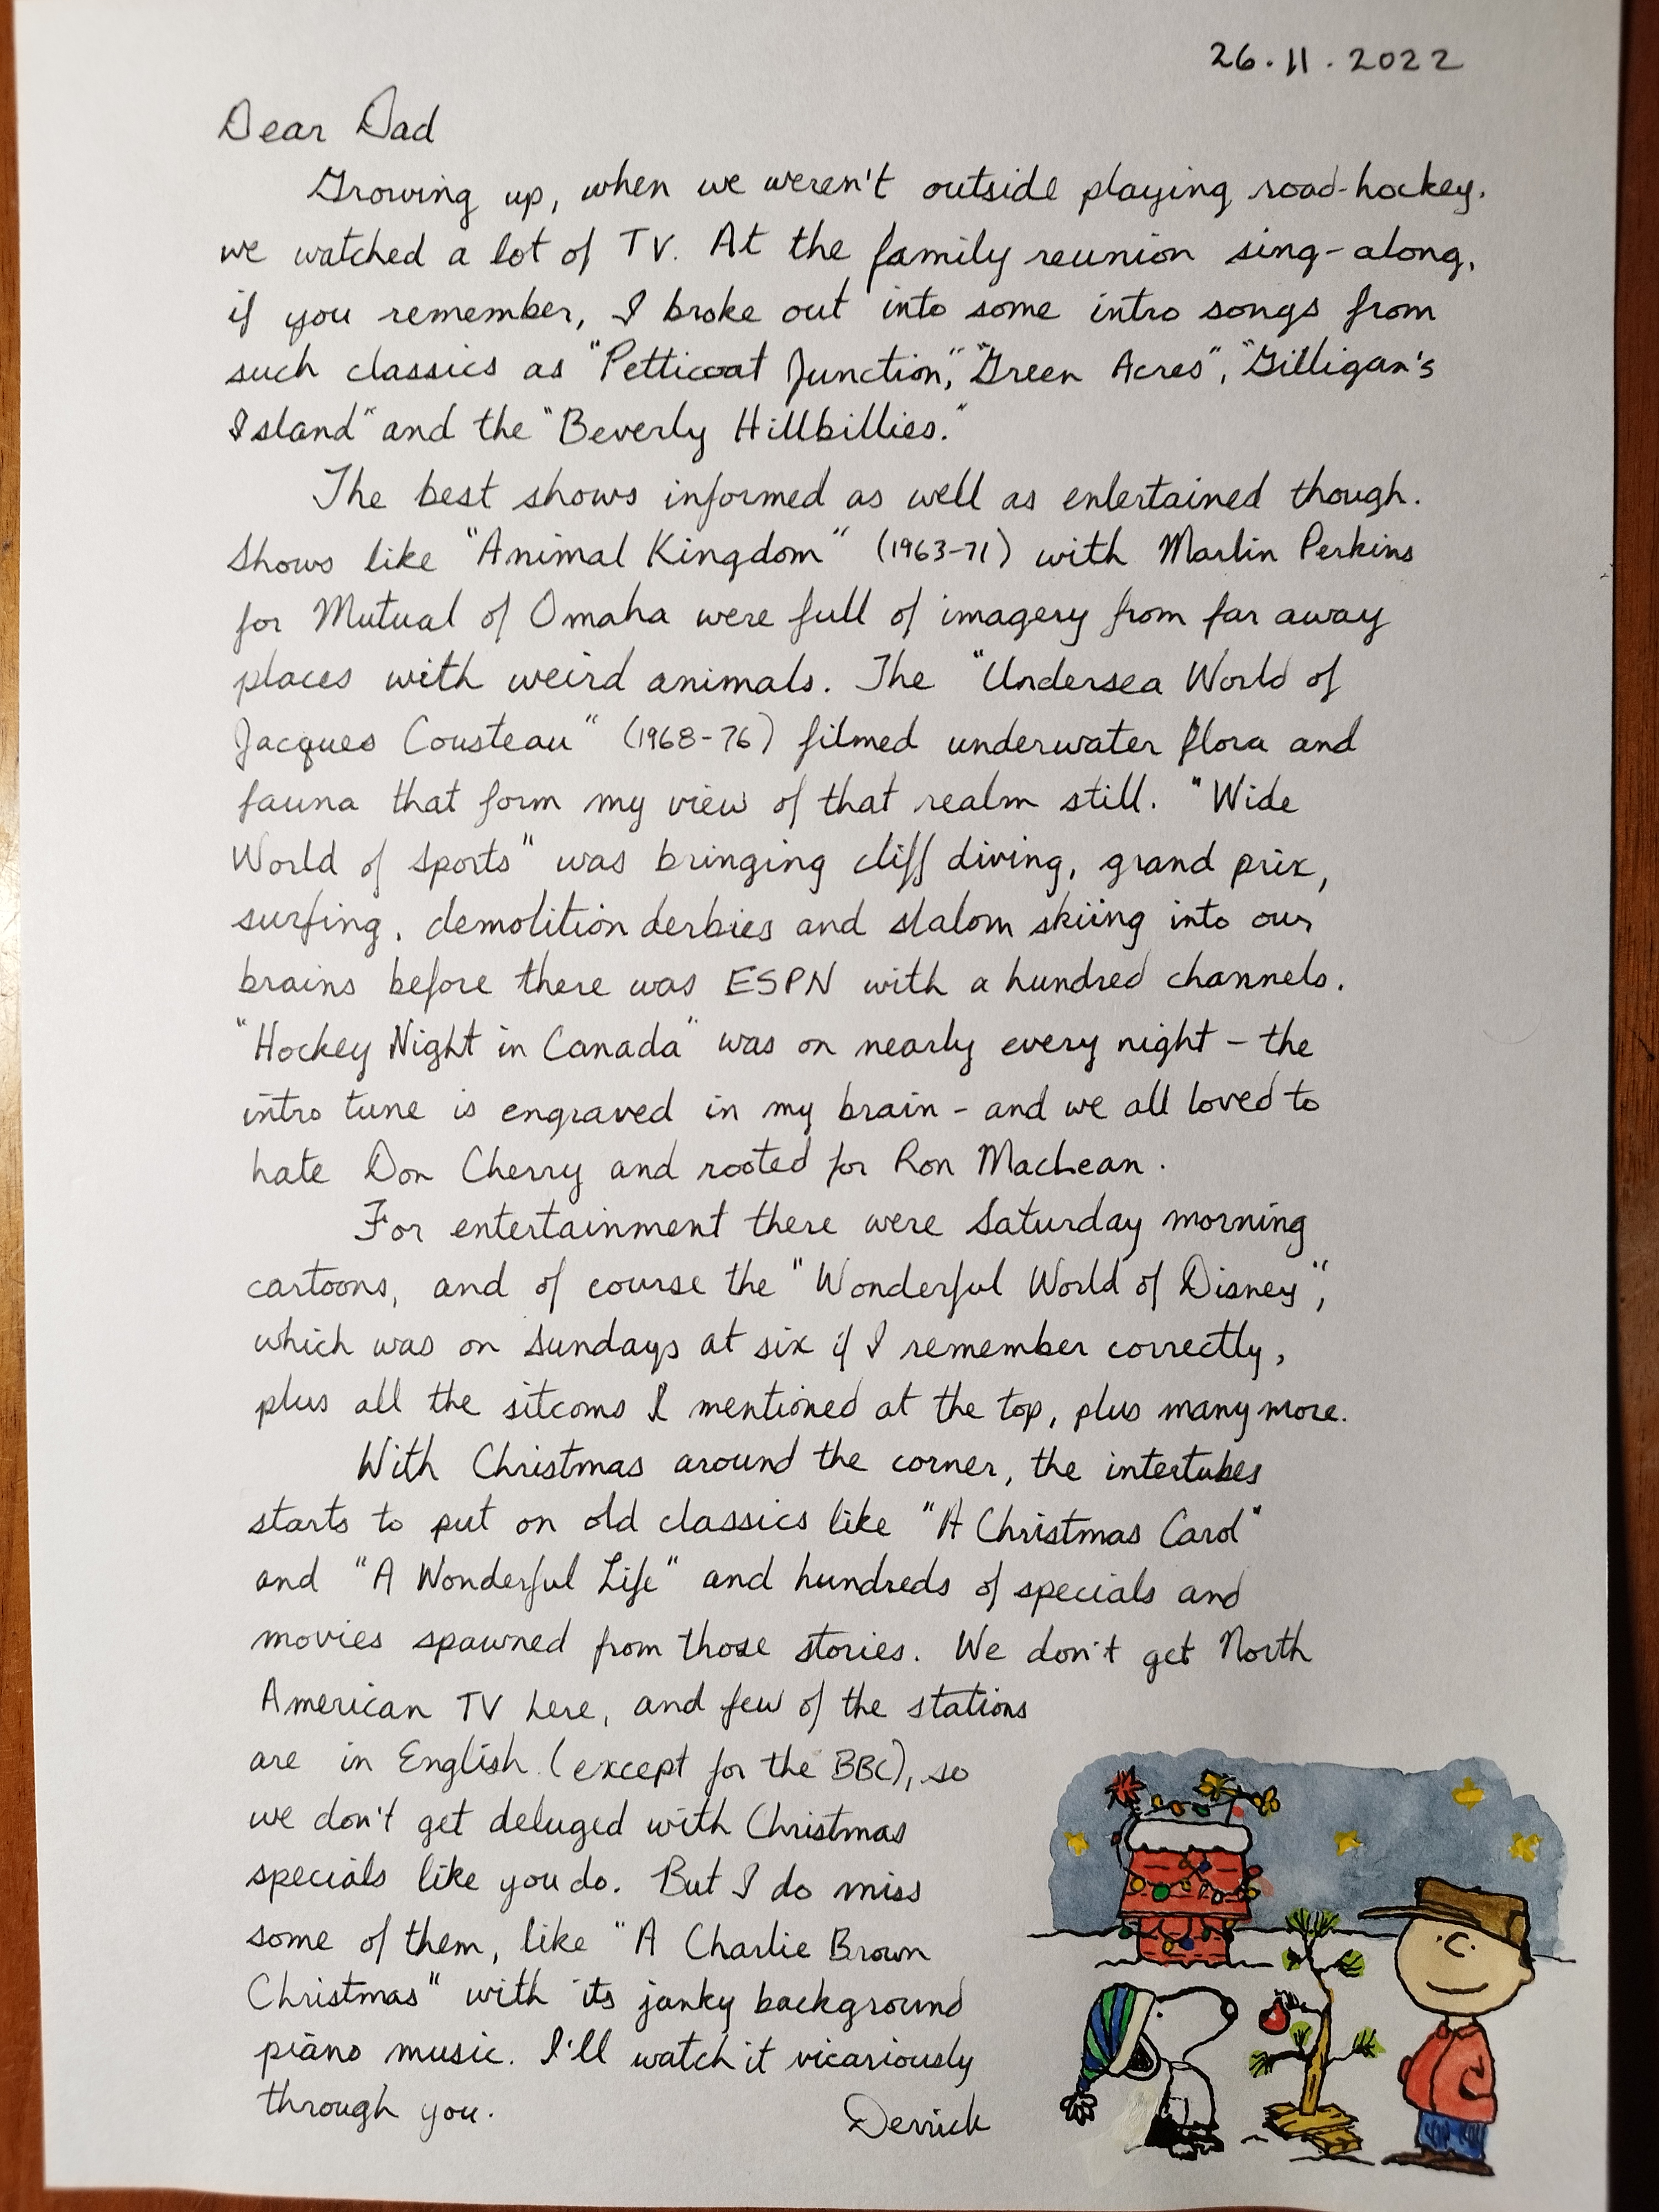 26.11.2022
Dear Dad
Growing up, when we weren't outside playing road-hockey,
we watched a lot of TV. At the family reunion sing-along,
if you remember, I broke out into some intro songs from
such classics as "Petticoat Junction", "Green Acres", "Gilligan's
Island" and the "Beverly Hillbillies."
The best shows informed as well as entertained though.
Shows like "Animal Kingdom" (1963-71) with Marlin Perkins
for Mutual of Omaha were full of imagery from far away
places with weird animals. The "Undersea World of
Jacques Cousteau" (1968-76) filmed underwater flora and
fauna that form my view of that realm still. "Wide
World of Sports" was bringing cliff diving, grand prix,
surfing, demolition derbies and slalom skiing into our
brains before there was ESPN with a hundred channels.
"Hockey Night in Canada" was on nearly every night - the
intro tune is engraved in my brain - and we all loved to
hate Don Cherry and rooted for Ron MacLean.
For entertainment there were Saturday morning
cartoons, and of course the "Wonderful World of Disney",
which was on Sundays at six if I remember correctly,
plus all the sitcoms I mentioned at the top, plus many more.
With Christmas around the corner, the intertubes
starts to put on old classics like "A Christmas Carol"
and "A Wonderful Life" and hundreds of specials and
movies spawned from those stories. We don't get North
American TV here, and few of the stations
are in English (except for the BBC), so
we don't get deluged with Christmas
specials like you do. But I do miss
some of them, like "A Charlie Brown
Christmas" with its janky background
piano music. I'll watch it vicariously
through you.
Derrick